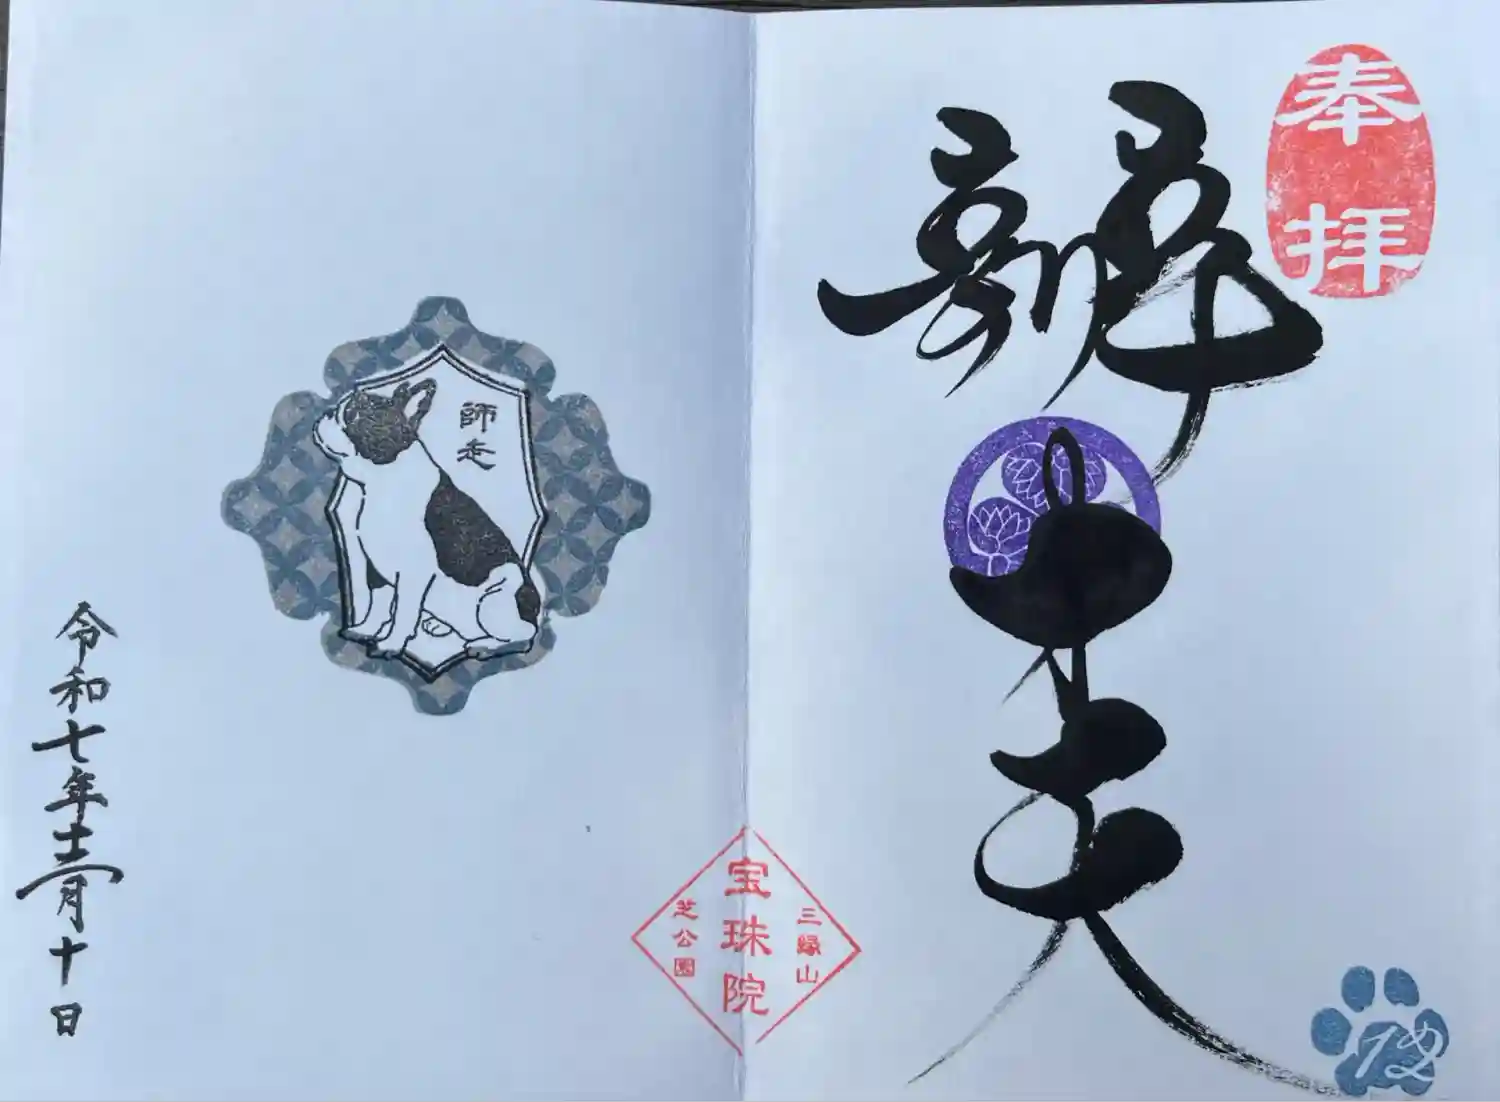 奉拝
辨才天
三縁山
宝珠院
芝公園
師走
令和七年十二月十日